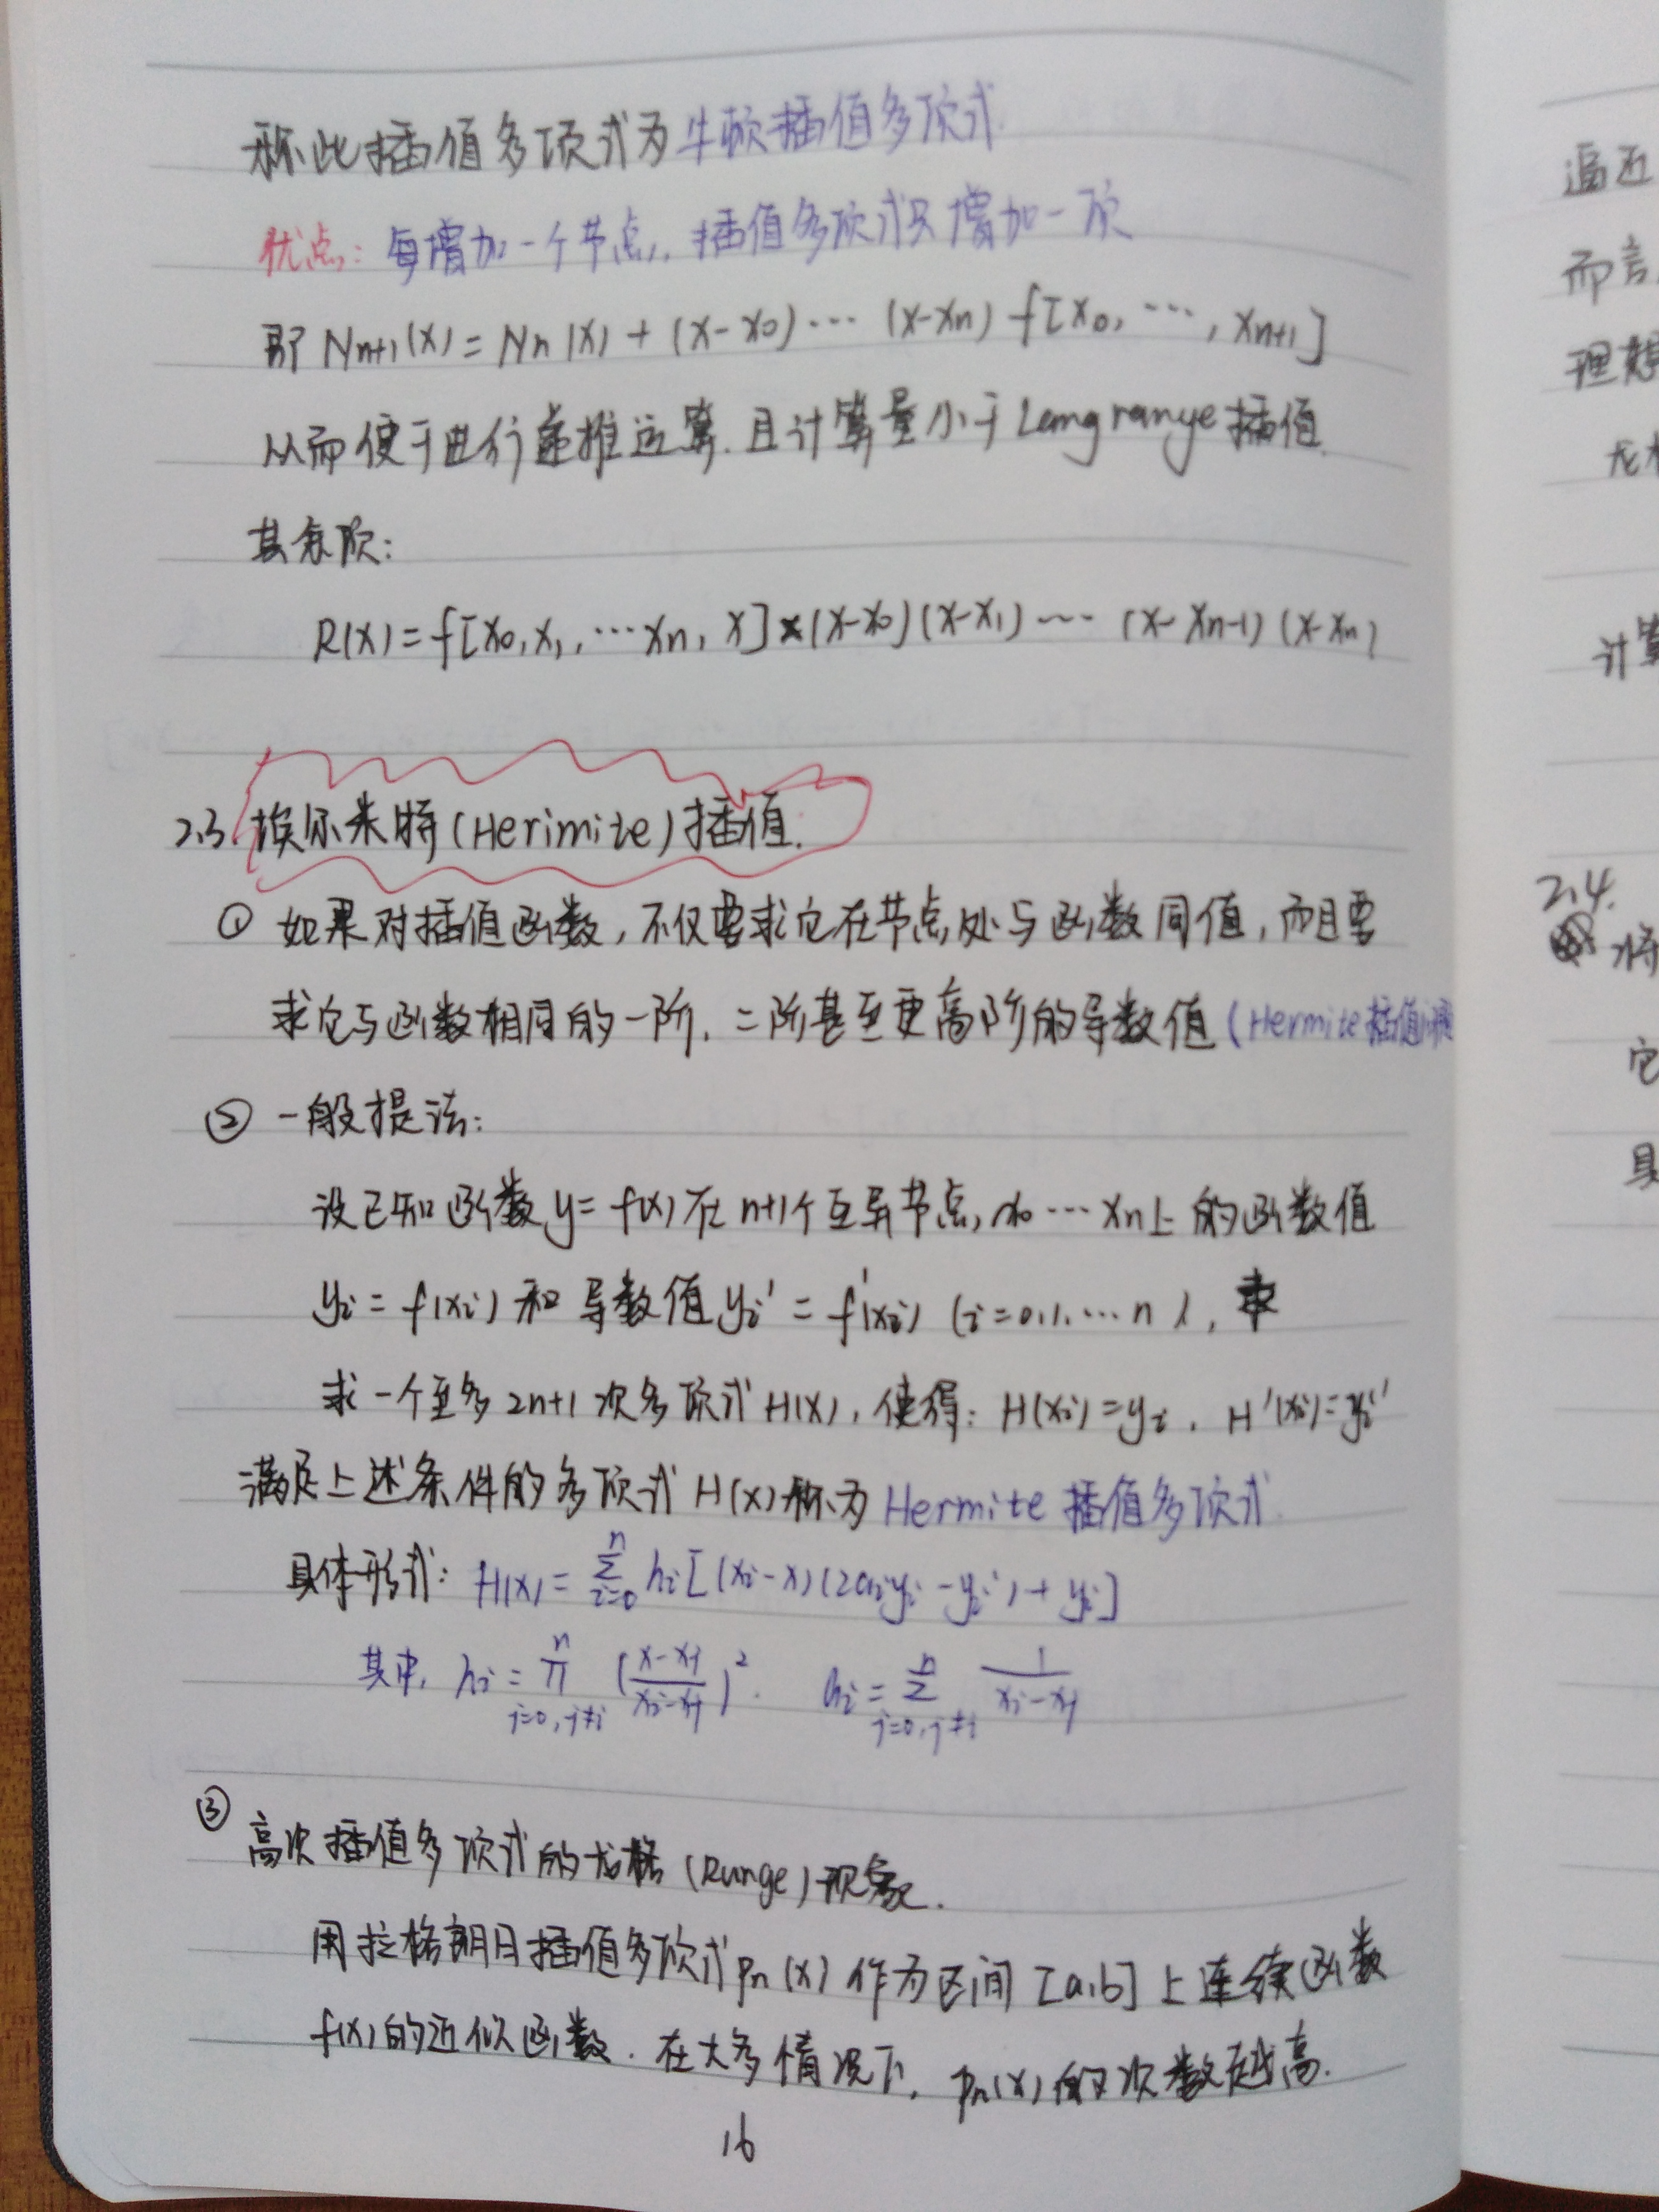 称此插值多项式为牛顿插值多项式.
优点: 每增加一个节点, 插值多项式只增加一项
即 Nn+1(x) = Nn(x) + (x-x0)⋯(x-xn) f[x0, ⋯, xn+1]
从而便于进行递推运算. 且计算量小于Langrange插值.
其余项:
R(x) = f[x0, x1, ⋯xn, x]×(x-x0)(x-x1)⋯(x-xn-1)(x-xn)
2.3. 埃尔米特(Herimite)插值.
① 如果对插值函数, 不仅要求它在节点处与函数同值, 而且要
求它与函数相同的一阶, 二阶甚至更高阶的导数值 (Hermite插值问题
② 一般提法:
设已知函数y= f(x)在n+1个互异节点, x0 ⋯ xn上的函数值
yi = f(xi) 和导数值yi' = f'(xi) (i=0,1,⋯n),
求一个至多2n+1次多项式H(x), 使得: H(xi)=yi, H'(xi)=yi'
满足上述条件的多项式H(x)称为Hermite插值多项式.
具体形式: H(x) = Σ_{i=0}^{n} hi[(xi-x)(2aiyi-yi')+yi]
其中, hi = Π_{j=0,j≠i}^{n} ((x-xj)/(xi-xj))². ai = Σ_{j=0,j≠i}^{n} 1/(xi-xj)
③ 高次插值多项式的龙格(Runge)现象.
用拉格朗日插值多项式pn(x)作为区间[a,b]上连续函数
f(x)的近似函数. 在大多情况下, pn(x)的次数越高.
16
逼近
而言
理想
计算
2.4.
将
它
具